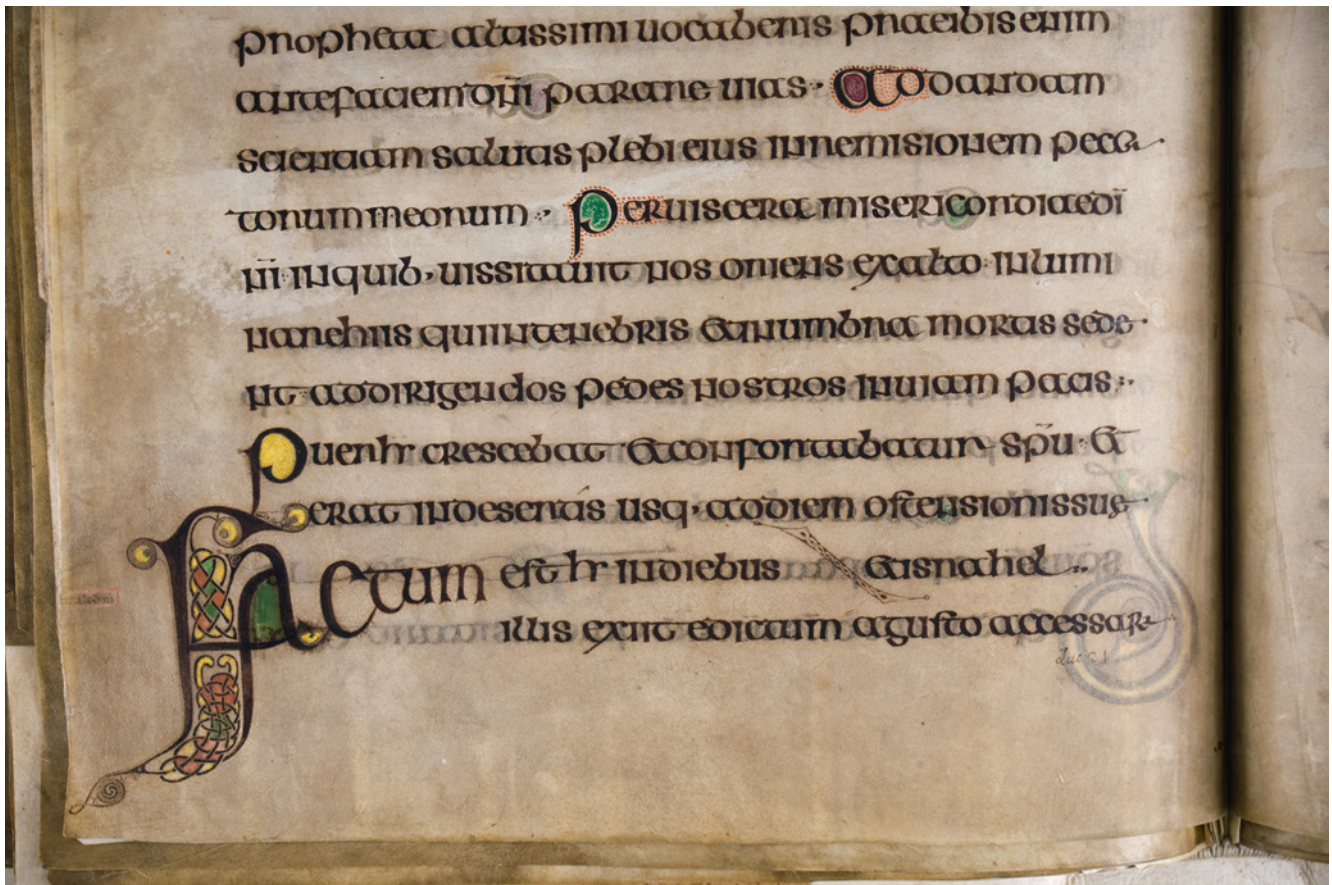 propheta altissimi uocaberis praeibis enim
ante faciem dn̄i parare uias · Ad dandam
scientiam salutis plebi eius in remisionem pecca
torum meorum ·:· Per uiscera misericordiae dī
nī in quib· uissitauit nos oriens ex alto inlumi
nare hiis qui in tenebris et in umbra mortis sede
nt ad dirigendos pedes nostros in uiam pacis :·
Puer hr crescebat et confortabatur sp̄u · et
erat in desertis usq· ad diem ostensionis sue
Factum est hr in diebus et israhel ..
illis exiit edictum agusto accessar